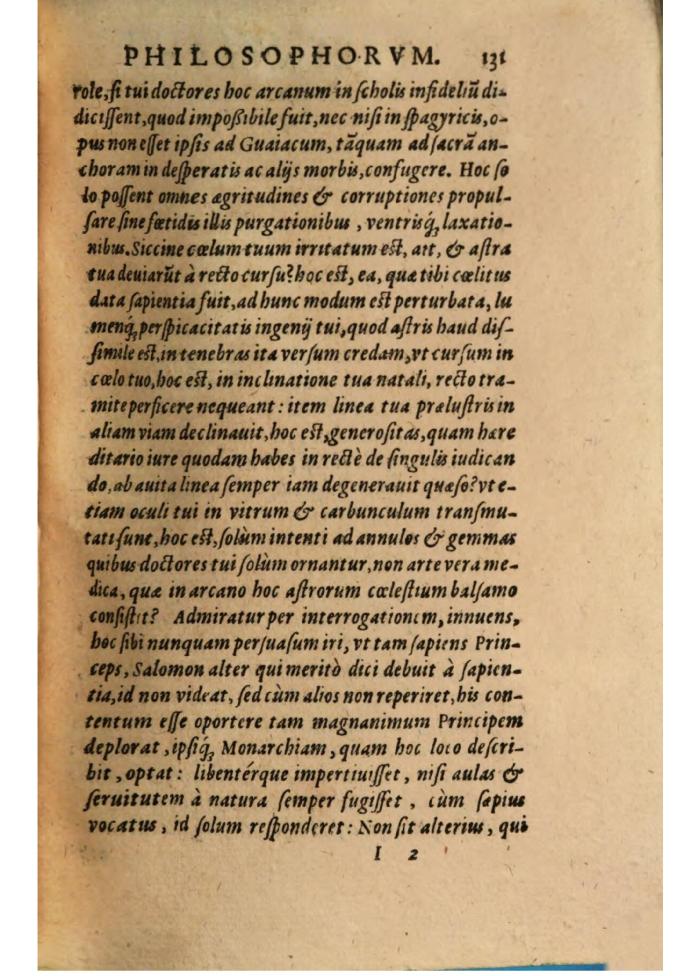 PHILOSOPHORVM. 131
role, si tui doctores hoc arcanum in scholis infideliũ di-
dicissent, quod impoßibile fuit, nec nisi in spagyricis, o-
pus non esset ipsis ad Guaiacum, tãquam ad sacrã an-
choram in desperatis ac alijs morbis, confugere. Hoc so
lo possent omnes ægritudines & corruptiones propul-
sare sine fœtidis illis purgationibus, ventrisq́; laxatio-
nibus. Siccine cœlum tuum irritatum est, ait, & astra
tua deuiarũt à recto cursu? hoc est, ea, quæ tibi cœlitus
data sapientia fuit, ad hunc modum est perturbata, lu
menq́; perspicacitatis ingenij tui, quod astris haud dis-
simile est, in tenebras ita versum credam, vt cursum in
cœlo tuo, hoc est, in inclinatione tua natali, recto tra-
mite perficere nequeant: item linea tua prælustris in
aliam viam declinauit, hoc est, generositas, quam hære
ditario iure quodam habes in rectè de singulis iudican
do, ab auita linea semper iam degenerauit quæso? vt e-
tiam oculi tui in vitrum & carbunculum transmu-
tati sunt, hoc est, solùm intenti ad annulos & gemmas
quibus doctores tui solùm ornantur, non arte vera me-
dica, quæ in arcano hoc astrorum cœlestium balsamo
consistit? Admiratur per interrogationem, innuens,
hoc sibi nunquam persuasum iri, vt tam sapiens Prin-
ceps, Salomon alter qui meritò dici debuit à sapien-
tia, id non videat, sed cùm alios non reperiret, his con-
tentum esse oportere tam magnanimum Principem
deplorat, ipsiq́; Monarchiam, quam hoc loco descri-
bit, optat: libentérque impertiuisset, nisi aulas &
seruitutem à natura semper fugisset, cùm sæpius
vocatus, id solum responderet: Non sit alterius, qui
I 2